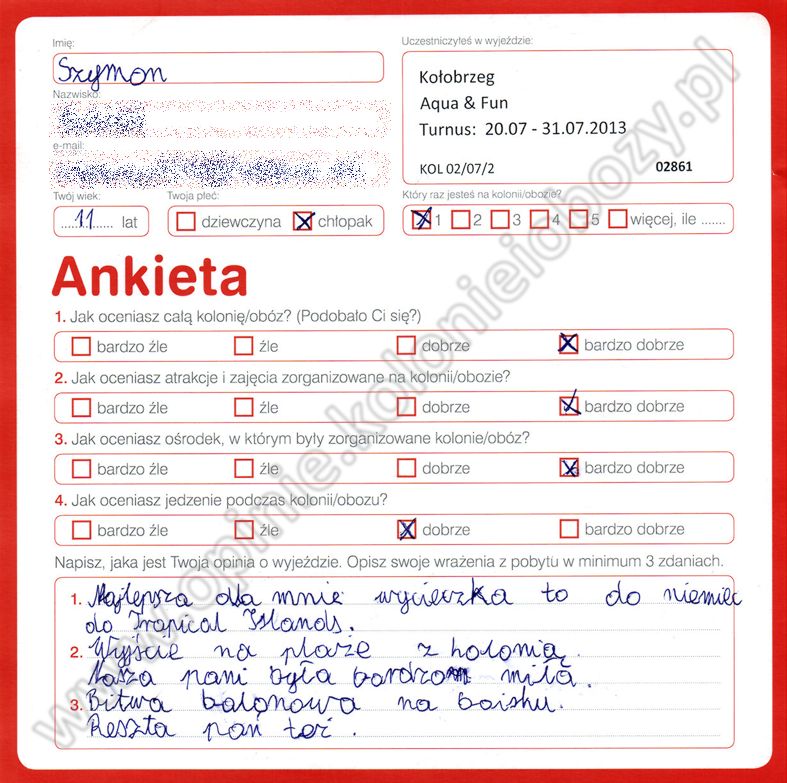 Imię:
Szymon
Uczestniczyłeś w wyjeździe:
Kołobrzeg
Aqua & Fun
Turnus: 20.07 - 31.07.2013
KOL 02/07/2 02861
Nazwisko:
e-mail:
Twój wiek:
11 lat
Twoja płeć:
dziewczyna chłopak
Który raz jesteś na kolonii/obozie?
1 2 3 4 5 więcej, ile .......
Ankieta
1. Jak oceniasz całą kolonię/obóz? (Podobało Ci się?)
bardzo źle źle dobrze bardzo dobrze
2. Jak oceniasz atrakcje i zajęcia zorganizowane na kolonii/obozie?
bardzo źle źle dobrze bardzo dobrze
3. Jak oceniasz ośrodek, w którym były zorganizowane kolonie/obóz?
bardzo źle źle dobrze bardzo dobrze
4. Jak oceniasz jedzenie podczas kolonii/obozu?
bardzo źle źle dobrze bardzo dobrze
Napisz, jaka jest Twoja opinia o wyjeździe. Opisz swoje wrażenia z pobytu w minimum 3 zdaniach.
1. Najlepsza dla mnie wycieczka to do niemiec
do Tropical Islands.
2. Wyjście na plaże z kolonią.
Nasza pani była bardzo miła.
3. Bitwa balonowa na boisku.
Reszta pań też.
www.opinie.kolonieiobozy.pl